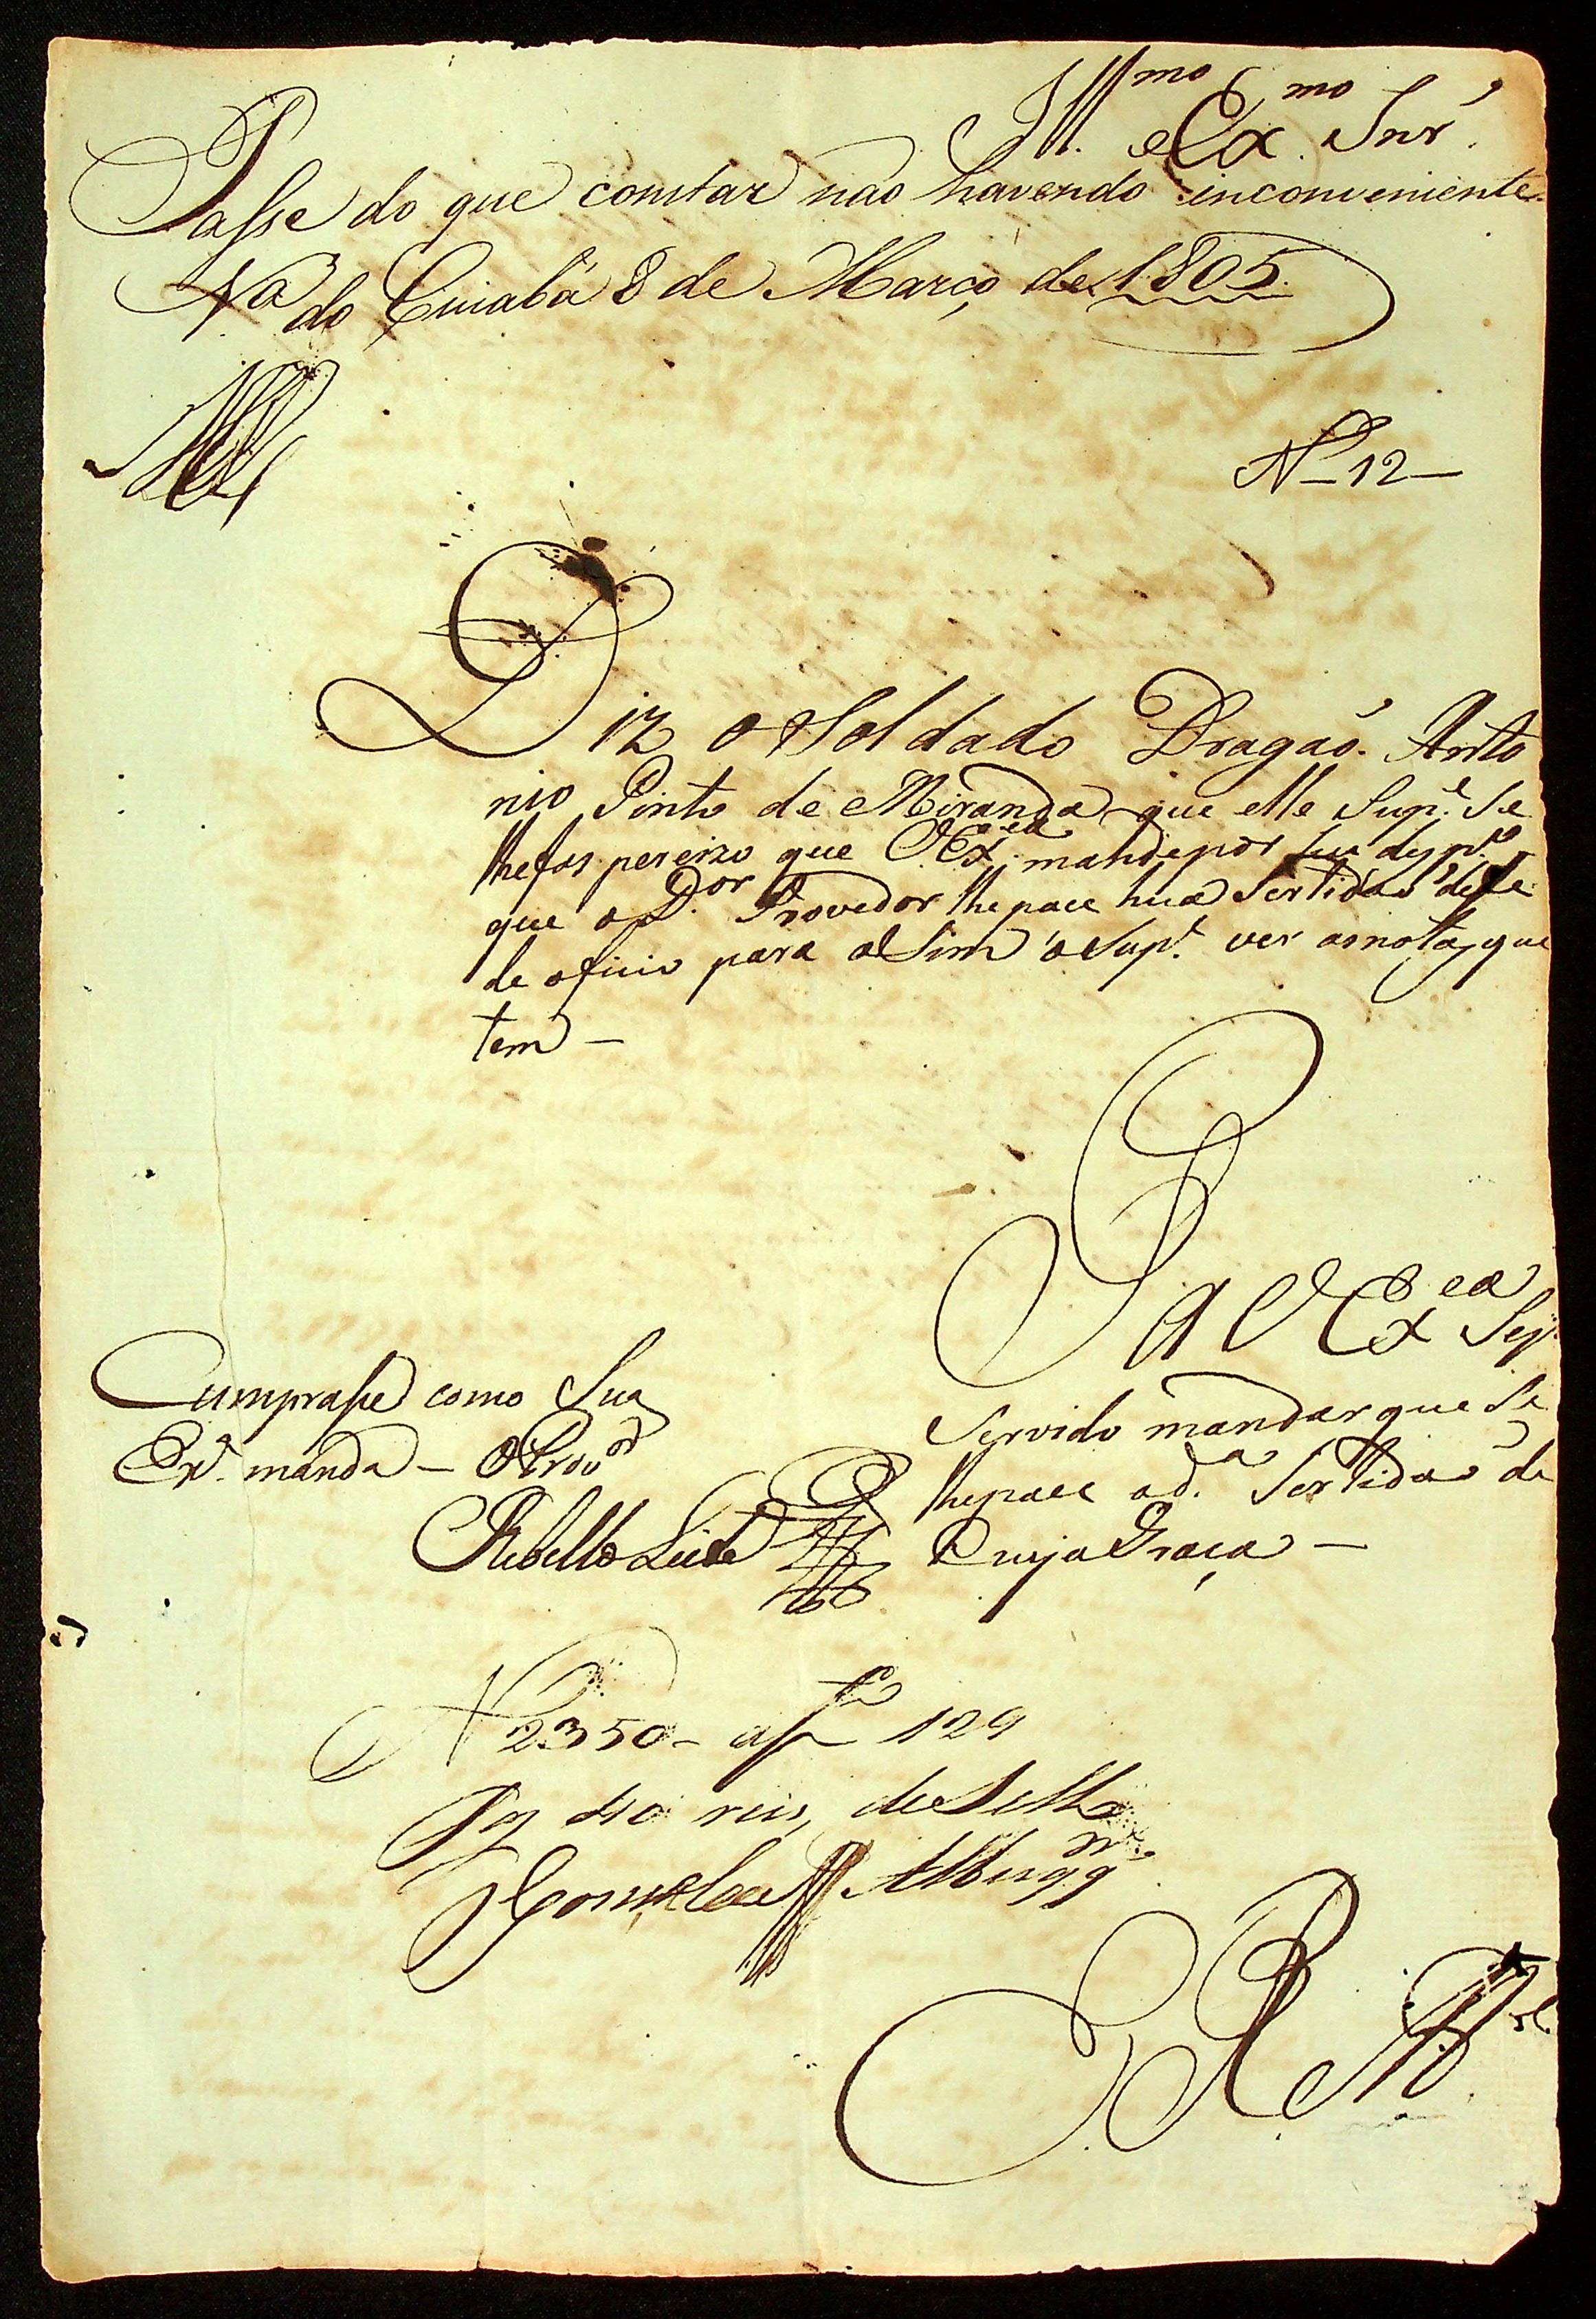 Ill.mo e Ex.mo Snr.
Passe do que constar não havendo inconveniente.
V.a do Cuiabá 8 de Março de 1805.
N–12–
Diz o Soldado Dragaõ. Anto
nio Pinto de Miranda que elle Sup.e Se
lhefas percizo que VEx.cia mande por Seu desp.o
que o D.or Provedor lhe pace hua Sertidaõ defe
de oficio para asim o Sup.e ver as notas que
tem –
P a VEx.cia Sej
Servido mandar que Se
lhepace a d.a Sertidaõ de
Cuja Graça –
Cumprasse como Sua
Ex.a manda – O Prov.or
Rebello Leite
N 2350 – a f 129
Pg 40 reis, de Sello
Albuqq
E R M.ce